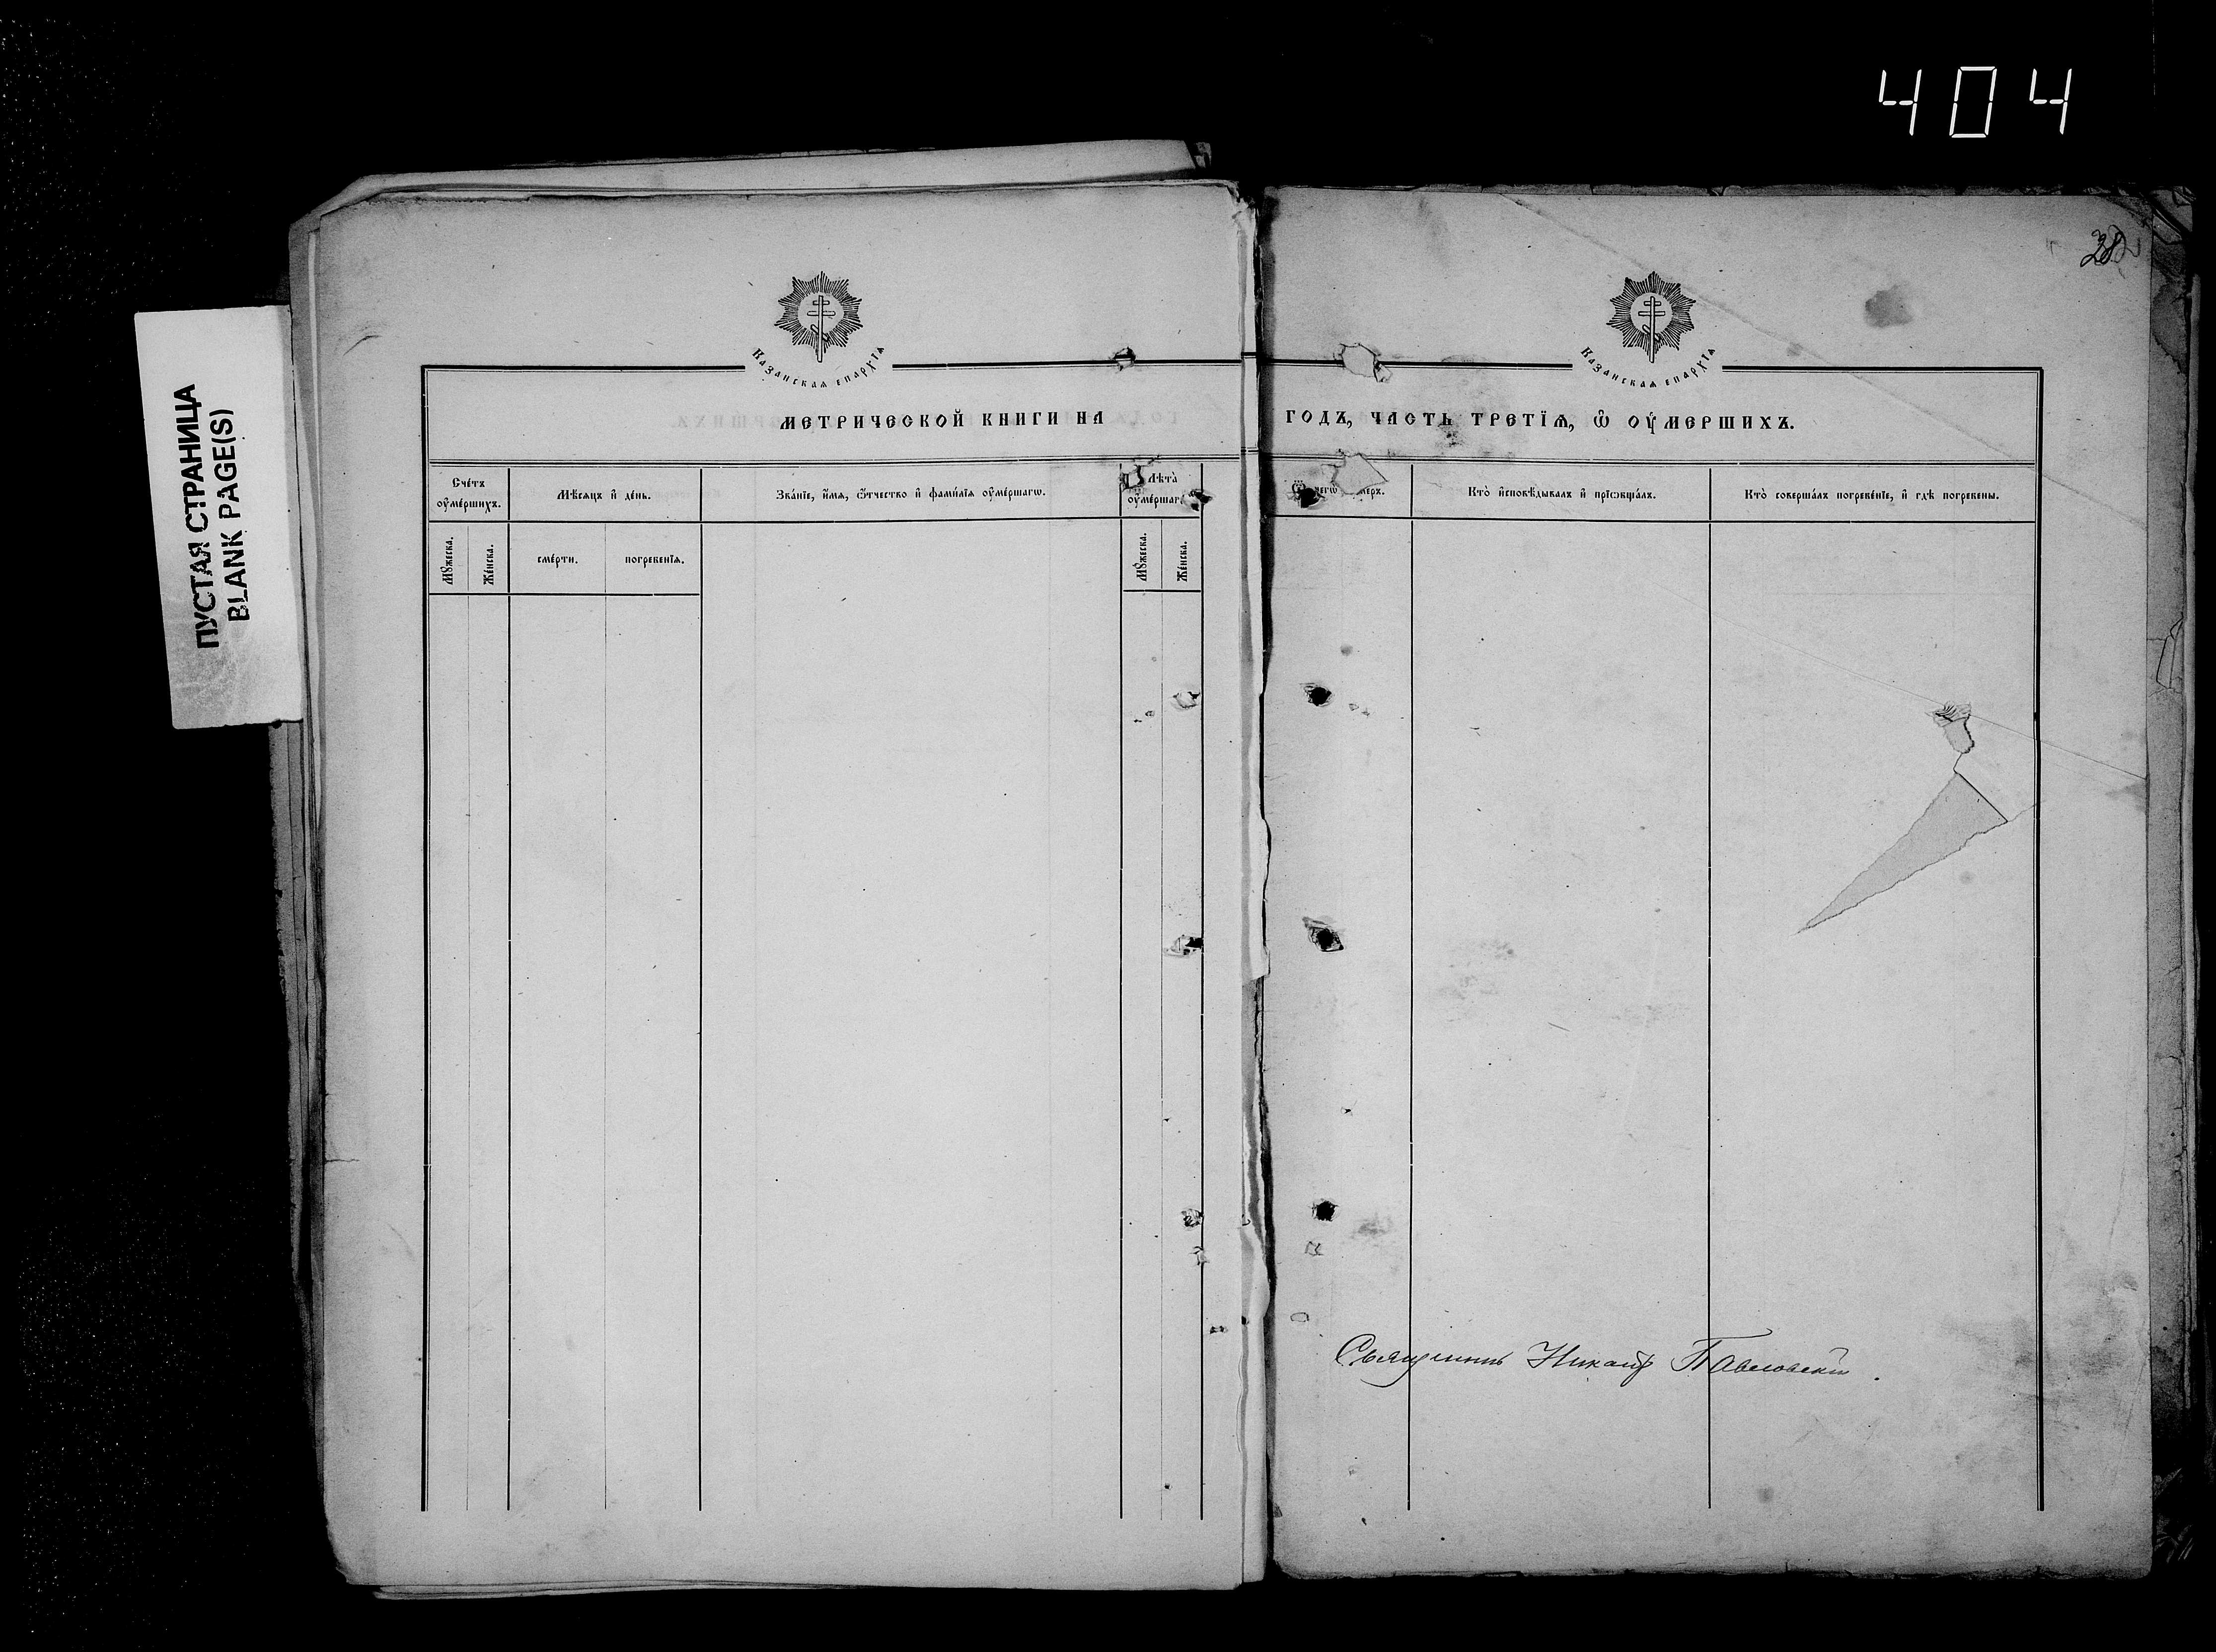 404
ПУСТАЯ СТРАНИЦА
BLANK PAGE(S)
Казанскаѧ епархїѧ
Казанскаѧ епархїѧ
МЕТРИЧЕСКОЙ КНИГИ НА ГОДЪ, ЧАСТЬ ТРЕТІѦ, Ѽ ОУМЕРШИХЪ.
Сче́тъ оу҆ме́ршихъ.
Мѣсѧцъ и҆ де́нь.
Зва́нїе, и҆́мѧ, ѻ҆́тчество и҆ фами́лїѧ оу҆ме́ршагѡ.
Лѣта̀ оу҆ме́ршаг
Кто̀ и҆сповѣ́дывалъ и҆ прїѡбща́лъ.
Кто̀ соверша́лъ погребе́нїе, и҆ гдѣ̀ погребены.
Мꙋ́жеска.
Же́нска.
сме́рти.
погребенїѧ.
Мꙋ́жеска.
Же́нска.
Священникъ Никаноръ Павловскій.